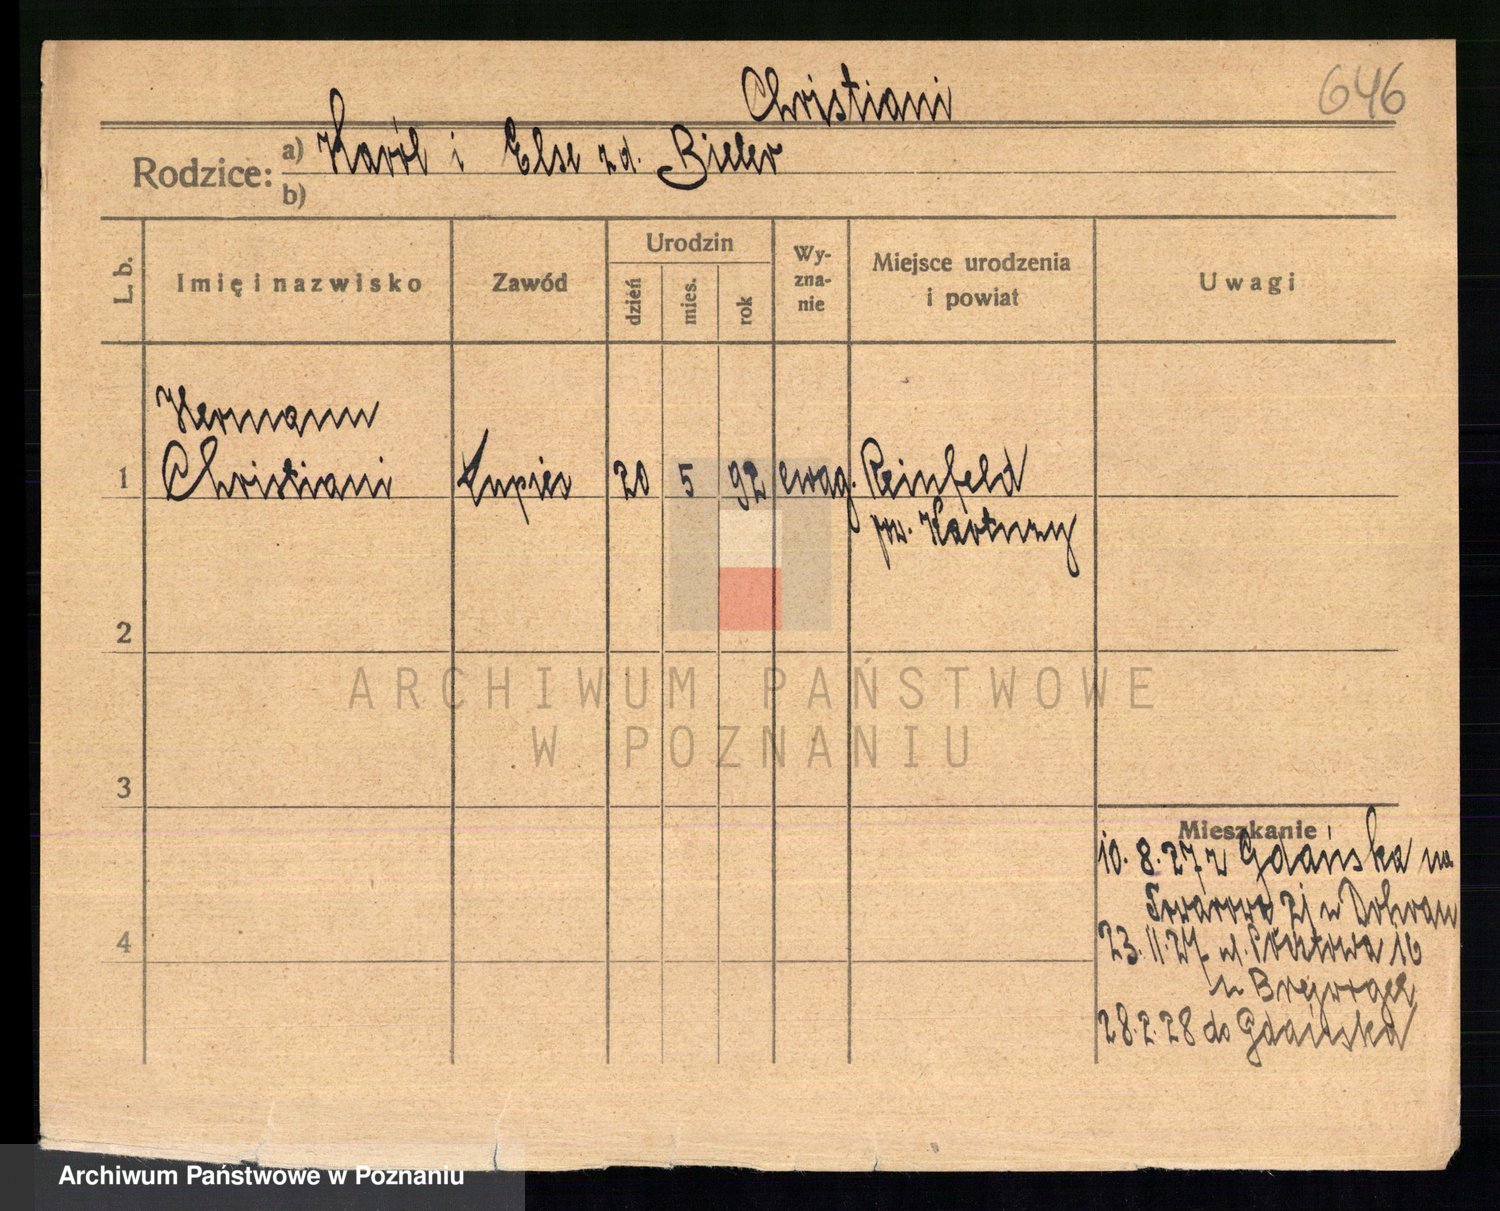 Christiani
646
Rodzice: a) Karól i Else zd. Bieler
b)
L. b.
Imię i nazwisko
Zawód
Urodzin
dzień
mies.
rok
Wy-
zna-
nie
Miejsce urodzenia
i powiat
Uwagi
Hermann
1 Christiani kupiec 20 5 92 ewag. Reinfeld
pw. Kartuzy
2
3
4
Mieszkanie
10. 8. 27 z Gdańska na
Towarowa 21 u
23. 11. 27 ul. Pocztowa 16
u
28. 2. 28 do Gdańska
ARCHIWUM PAŃSTWOWE
W POZNANIU
Archiwum Państwowe w Poznaniu